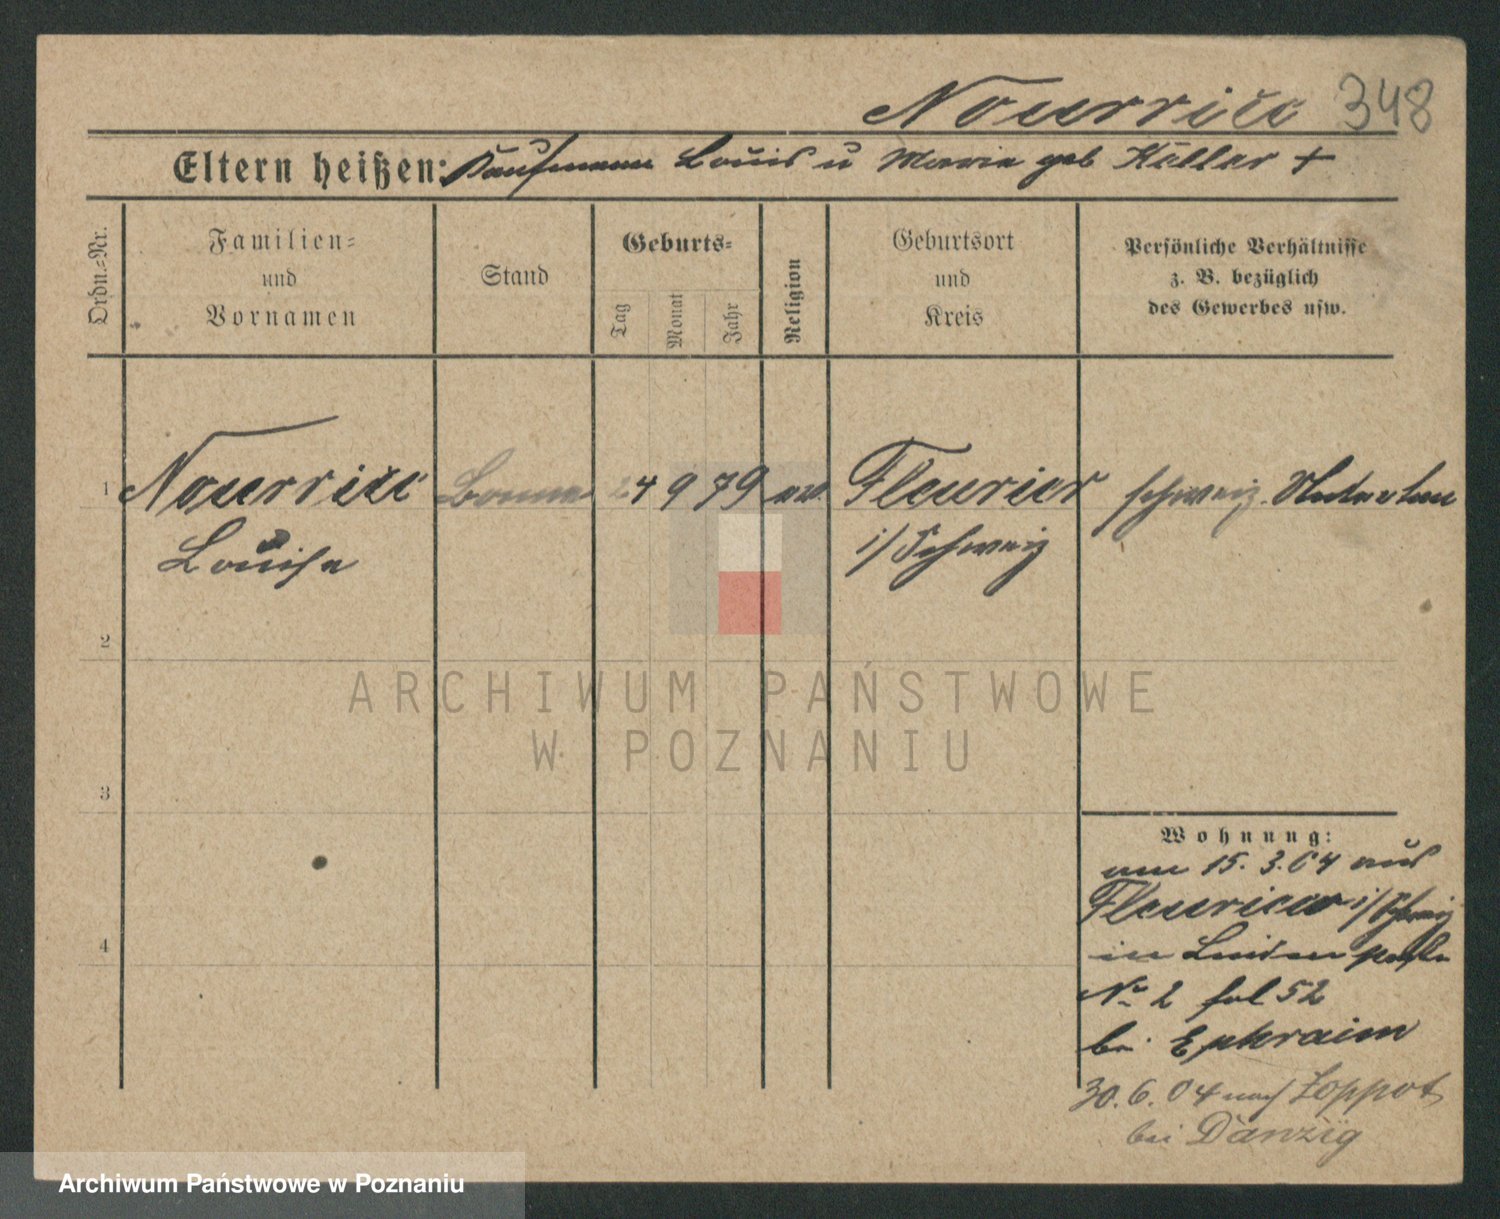 Nourrice 348
Eltern heißen: Kaufmann Louis u Marie geb Haller +
Ordn.-Nr.
Familien-
und
Vornamen
Stand
Geburts-
Tag
Monat
Jahr
Religion
Geburtsort
und
Kreis
Persönliche Verhältnisse
z. B. bezüglich
des Gewerbes usw.
1 Nourrice Bonne 24 9 79 ev. Fleurier schweiz.
Louise i/Schweiz
2
3
4
Wohnung:
am 15.3.04 aus
Fleurier i/Schweiz
in Linden
Nr 2 fol 52
bei Ephraim
30.6.04 nach Zoppot
bei Danzig
ARCHIWUM PAŃSTWOWE
W POZNANIU
Archiwum Państwowe w Poznaniu